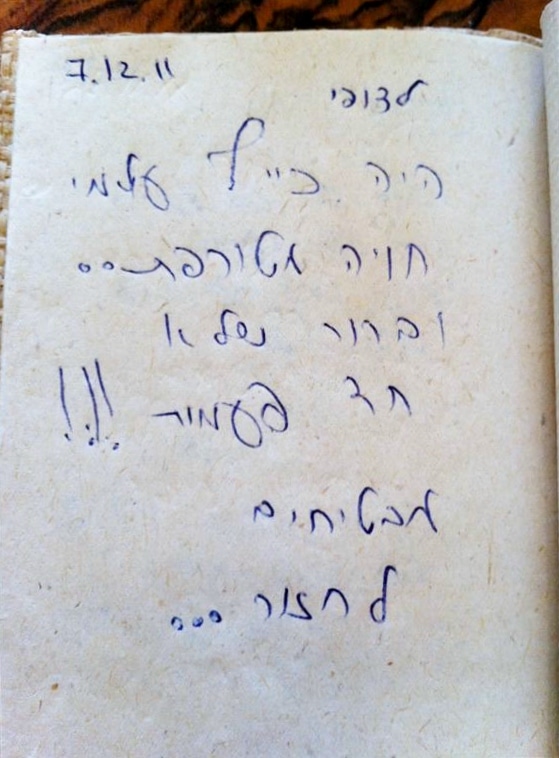 7.12.11
לצופי
היה כייף עצמי
חויה מטורפת..
וברור שלא
חד פעמית !!!
מבטיחים
לחזור...